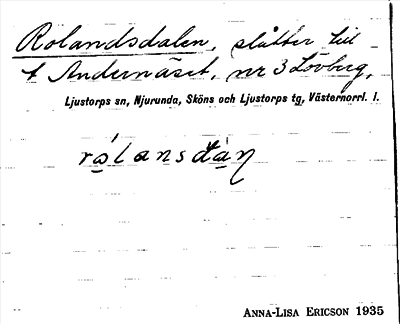 Rolandsdalen, slåtter till
t Andernäset, nr 3 Lövberg,
Ljustorps sn, Njurunda, Sköns och Ljustorps tg, Västernorrl. l.
ANNA-LISA ERICSON 1935